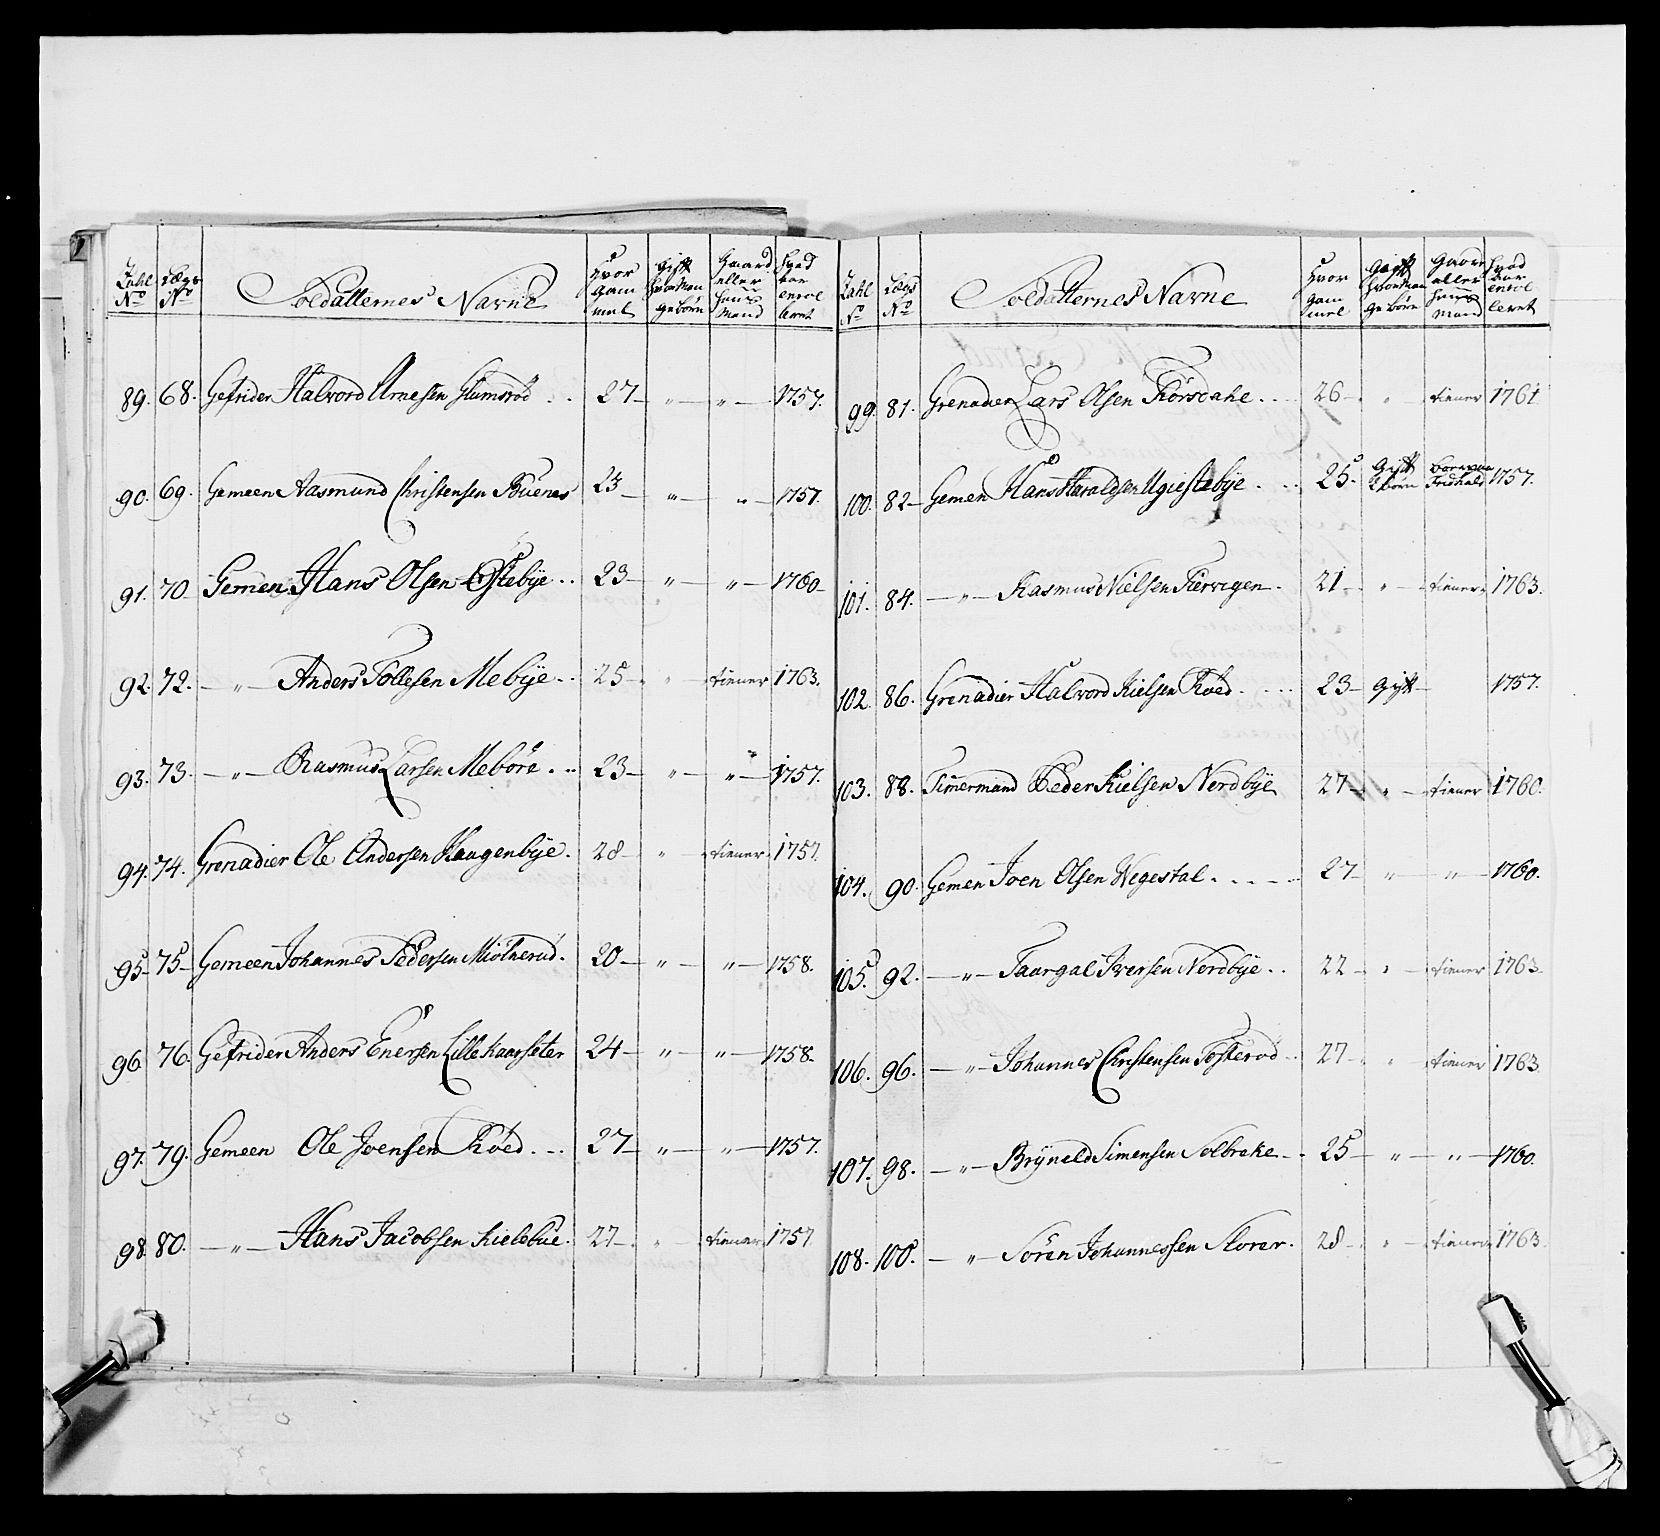 Zahl No | Lægs No | Soldatternes Navne | Hvor gam mel | Gift hvor man ge børn | Gaard eller huus mand | Hvad aar enrol leret
89. | 68. | Gefrider Halvord Arnesen Glumsrød | 27 | " | " | 1757.
90. | 69. | Gemeen Aasmund Christensen Buenes | 23 | " | " | 1757.
91. | 70 | Gemen Hans Olsen Østebye | 23 | " | " | 1760
92. | 72. | " Anders Tollesen Mebye | 25 | " | tiener | 1763.
93. | 73. | " Rasmus Larsen Meböre | 23 | " | " | 1757.
94. | 74. | Grenadier Ole Andersen Haagenbye. | 28 | " | tiener | 1757.
95 | 75 | Gemeen Johannes Pedersen Miölnerud. | 20 | " | " | 1758.
96 | 76. | Gefrider Anders Enersen Lille Kaarseter | 24 | " | " | 1758.
97. | 79. | Gemeen Ole Joensen Röed | 27 | " | " | 1757.
98 | 80. | " Hans Jacobsen Kielebue. | 27 | " | tiener | 1757
Zahl No | Lægs No | Soldatternes Navne | Hvor gam mel | Gift hvor man ge børn | Gaard eller huus mand | Hvad aar enrol leret
99. | 81. | Grenadier Lars Olsen | 26 | " | tiener | 1761
100. | 82 | Gemen Hans Haraldsen Ugiestebye | 25. | Gift 2 børn | Frishald | 1757.
101. | 84. | " Rasmus Nielsen Kiervigen | 21 | " | tiener | 1763.
102. | 86. | Grenadier Halvord Kielsen Röed | 23 | Gift | 1757.
103. | 88. | Timermand Peder Kielsen Nordbye | 27 | " | tiener | 1760.
104. | 90. | Gemen Joen Olsen Wegestal | 27 | " | " | 1760.
105. | 92. | " Taargal Iversen Nordbye | 22 | " | tiener | 1763.
106. | 96. | " Johannes Christensen Tosterød | 27 | " | tiener | 1763.
107. | 98. | " Bryneld Simensen Solbreke | 25 | " | " | 1760.
108. | 100. | " Sören Johannessen Storer. | 28 | " | tiener | 1763.